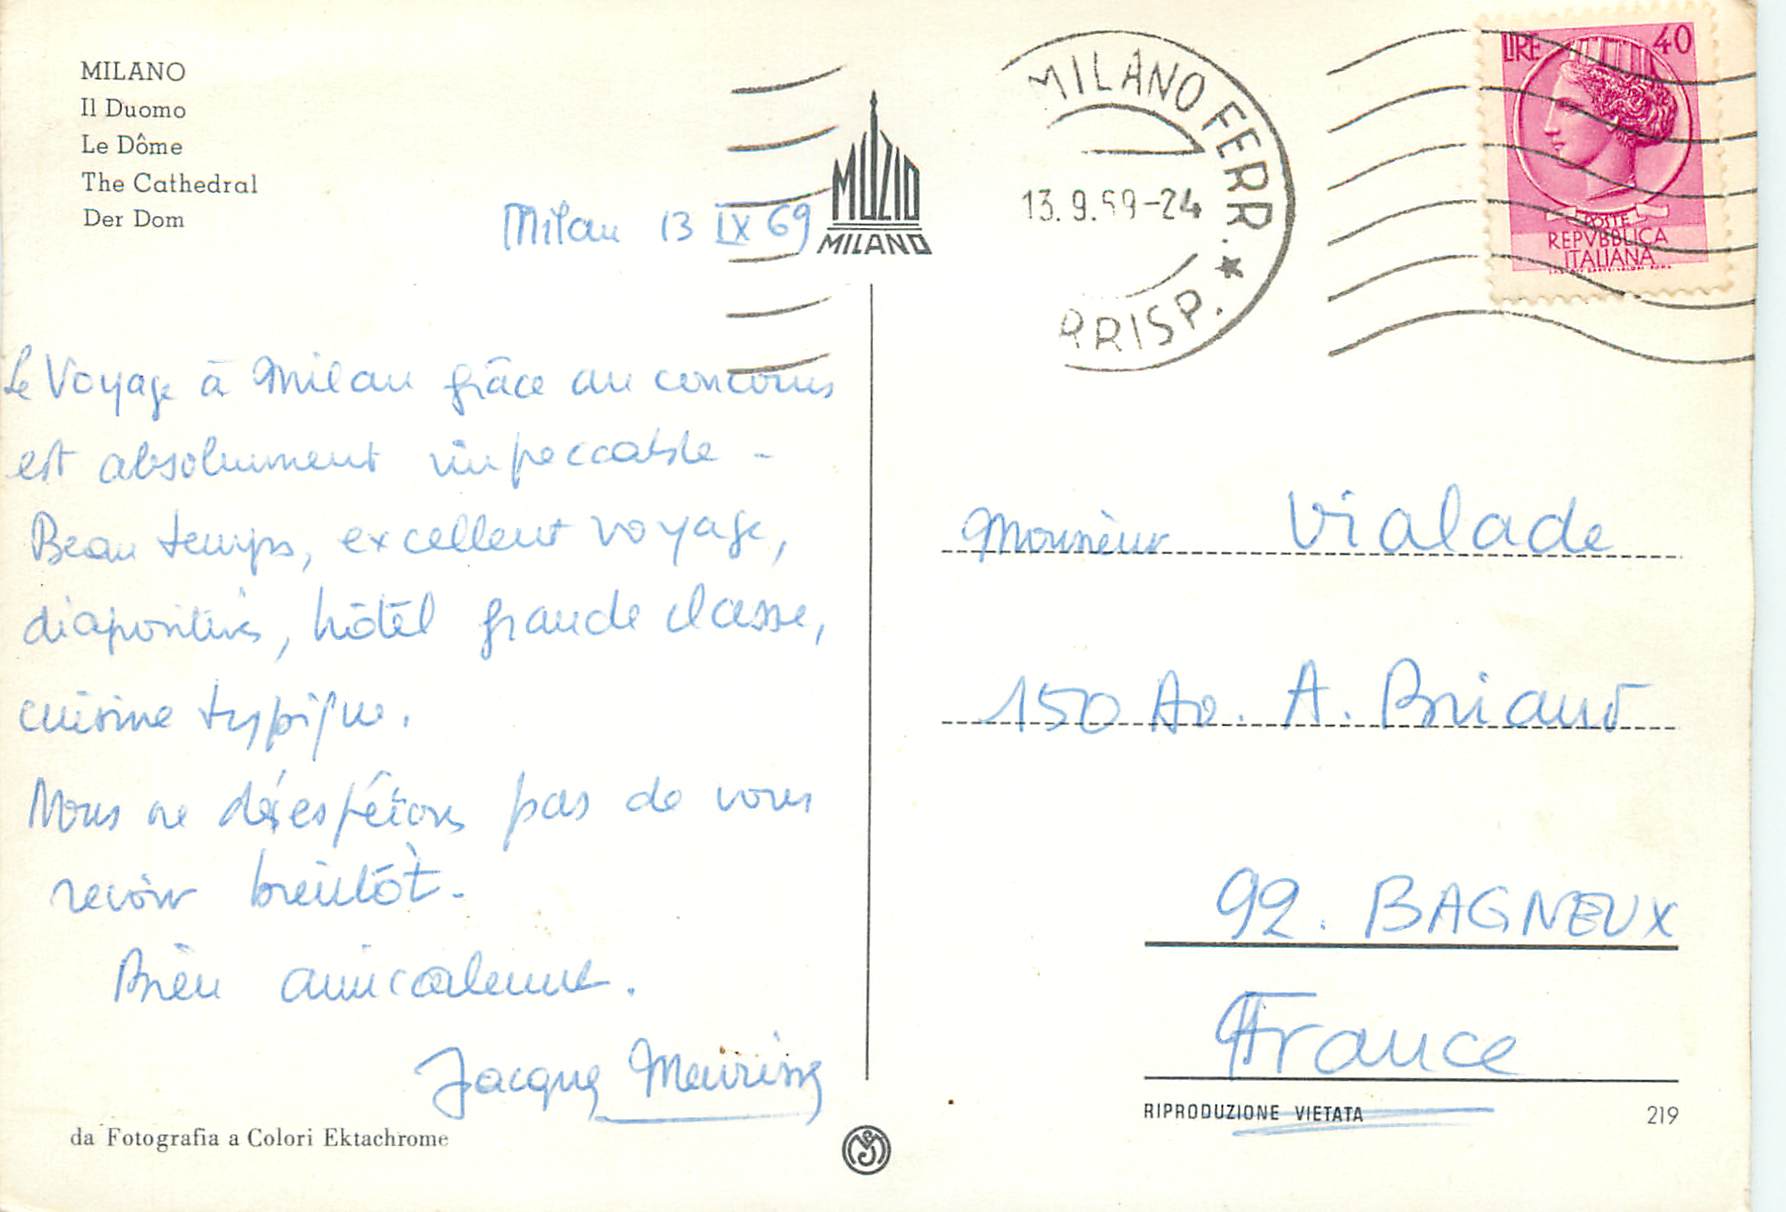 MILANO
Il Duomo
Le Dôme
The Cathedral
Der Dom
Milan 13 IX 69
MUZIO
MILANO
MILANO FERR.
13.9.69-24
ARRISP.
LIRE 40
POSTE
REPVBBLICA
ITALIANA
Le Voyage à Milan grâce au concours
est absolument impeccable -
Beau temps, excellent voyage,
diapositives, hôtel grande classe,
cuisine typique.
Nous ne désespérons pas de vous
revoir bientôt.
Bien amicalement.
Jacques
Monsieur Vialade
150 Av. A. Briand
92. BAGNEUX
France
RIPRODUZIONE VIETATA
219
da Fotografia a Colori Ektachrome